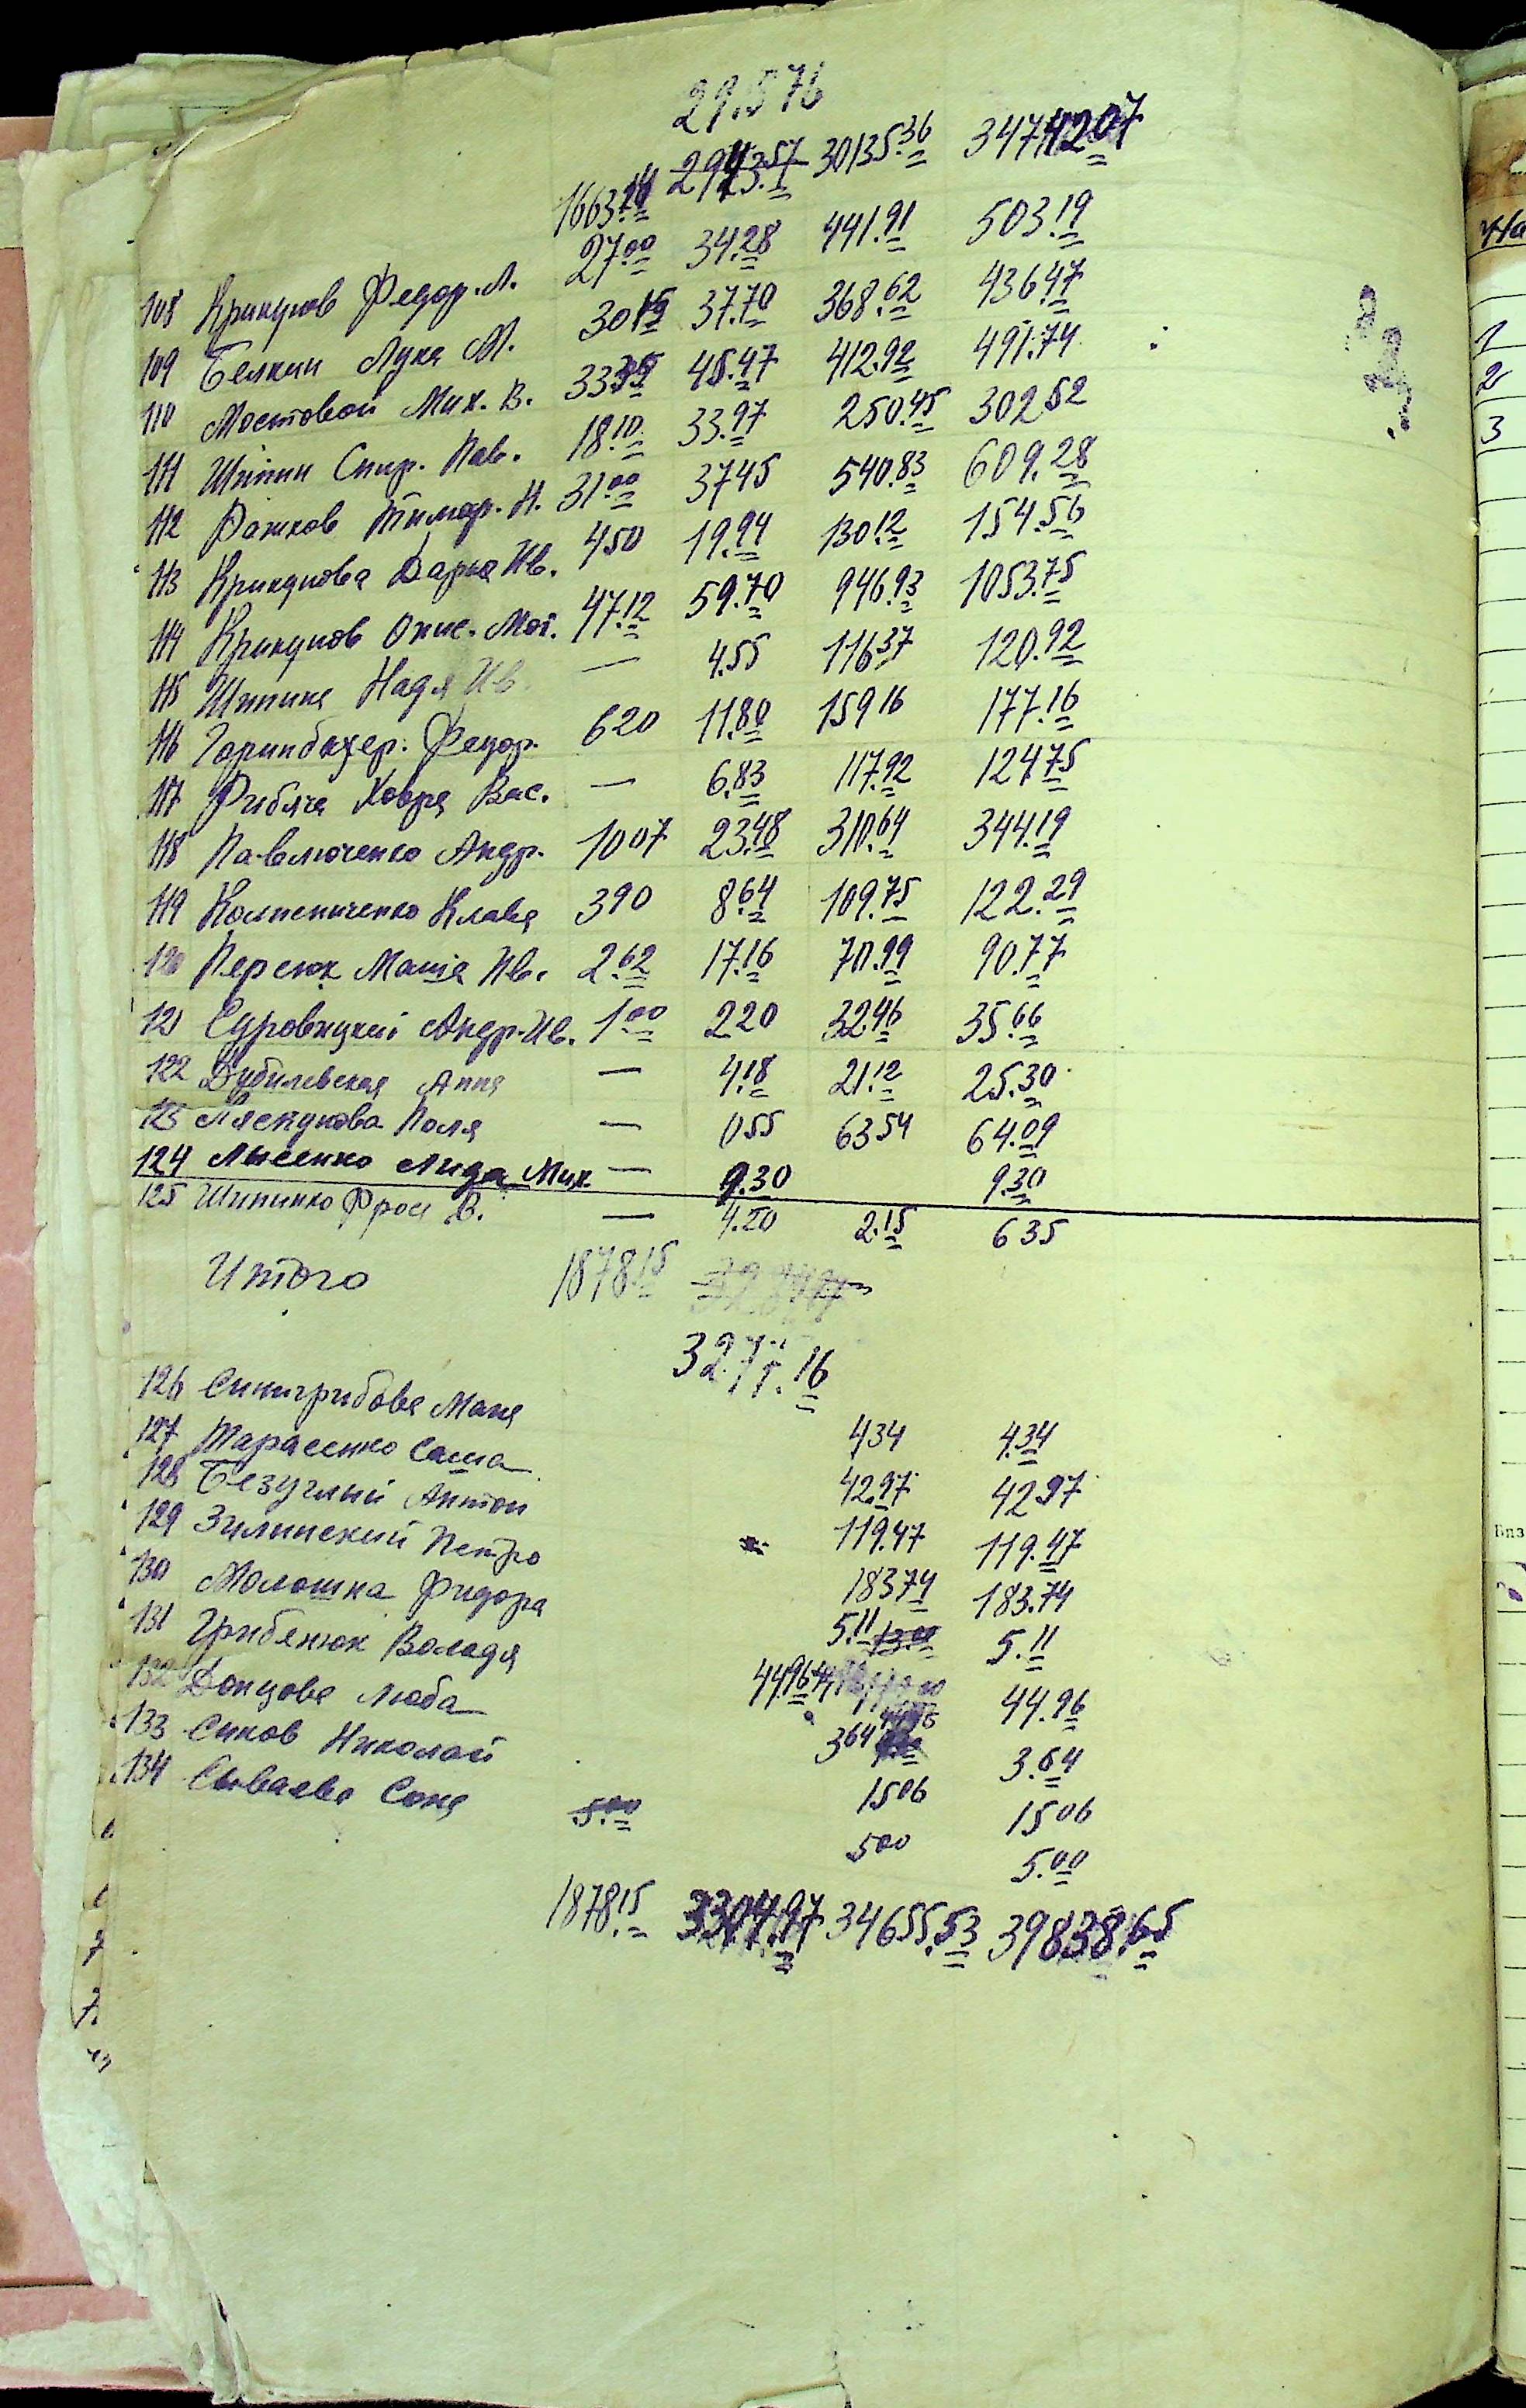 29.576
1663.74 2943.57 30135.36 34742.07
108 Крикунов Федор. Л. 27.00 34.28 441.91 503.19
109 Белкин Лука М. 30.15 37.70 368.62 436.47
110 Мостовой Мих. В. 33.35 45.47 412.92 491.74
111 Шипин Спир. Пав. 18.10 33.97 250.45 302.52
112 Рашков Тимор. И. 31.00 37.45 540.83 609.28
113 Крикунова Дарья Ив. 4.50 19.94 130.12 154.56
114 Крикунов Онис. Мой. 47.12 59.70 946.93 1053.75
115 Шипина Надя Ив. — 4.55 116.37 120.92
116 Федор. 6.20 11.80 159.16 177.16
117 Рибяча Ховря Вас. — 6.83 117.92 124.75
118 Павлюченко Андр. 10.07 23.48 310.64 344.19
119 Клава 3.90 8.64 109.75 122.29
120 Персюк Маша Ив. 2.62 17.16 70.99 90.77
121 Суровицкий Андр. Ив. 1.00 2.20 32.46 35.66
122 Дубилевская Анна — 4.18 21.12 25.30
123 Поля — 0.55 63.54 64.09
124 Лысенко Лида Мих. — 9.30 9.30
125 Шипинко Фрося В. — 4.20 2.15 6.35
Итого 1878.15
327 .16
126 Синигрибова Маня 4.34 4.34
127 Тарасенко Саша 42.97 42.97
128 Безуглый Антон 119.47 119.47
129 Зилинский Петро 183.74 183.74
130 Молошна Фидора 5.11 5.11
131 Грибенюк Володя 44.96 44.96
132 Донцова Люба 3.64 3.64
133 Сиков Николай 15.06 15.06
134 Соня 5.00 5.00 5.00
1878.15 3304.97 34655.53 39838.65
1
2
3